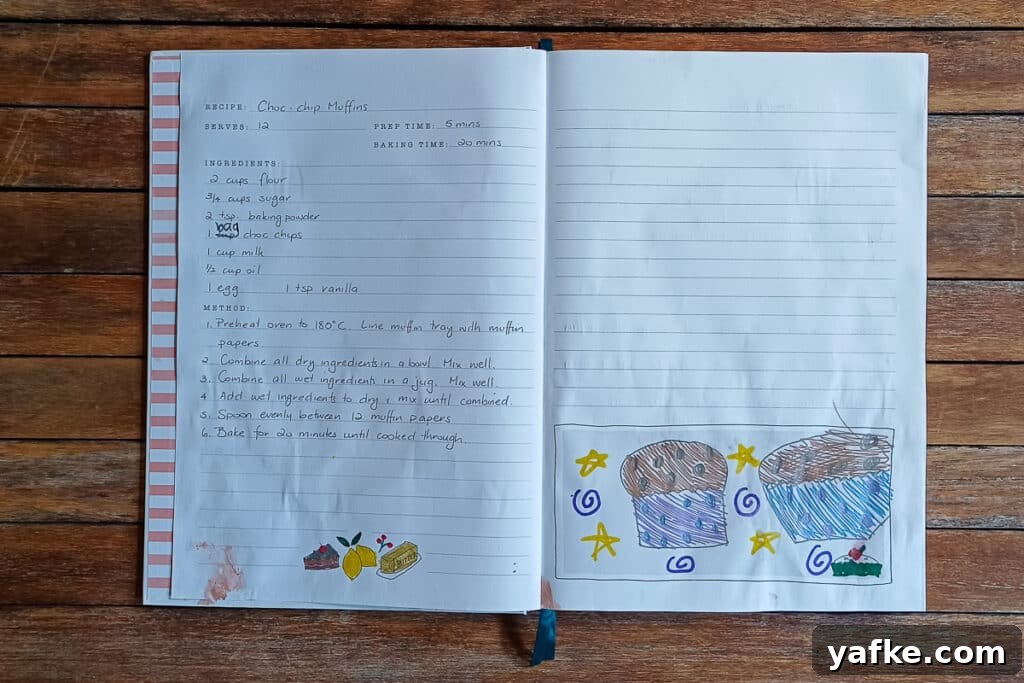 RECIPE: Choc-chip Muffins
SERVES: 12 PREP TIME: 5 mins
BAKING TIME: 20 mins
INGREDIENTS:
2 cups flour
3/4 cups sugar
2 tsp. baking powder
1 bag choc chips
1 cup milk
1/2 cup oil
1 egg 1 tsp vanilla
METHOD:
1. Preheat oven to 180°C. Line muffin tray with muffin
papers.
2. Combine all dry ingredients in a bowl. Mix well.
3. Combine all wet ingredients in a jug. Mix well.
4. Add wet ingredients to dry & mix until combined.
5. Spoon evenly between 12 muffin papers
6. Bake for 20 minutes until cooked through.
yafke.com